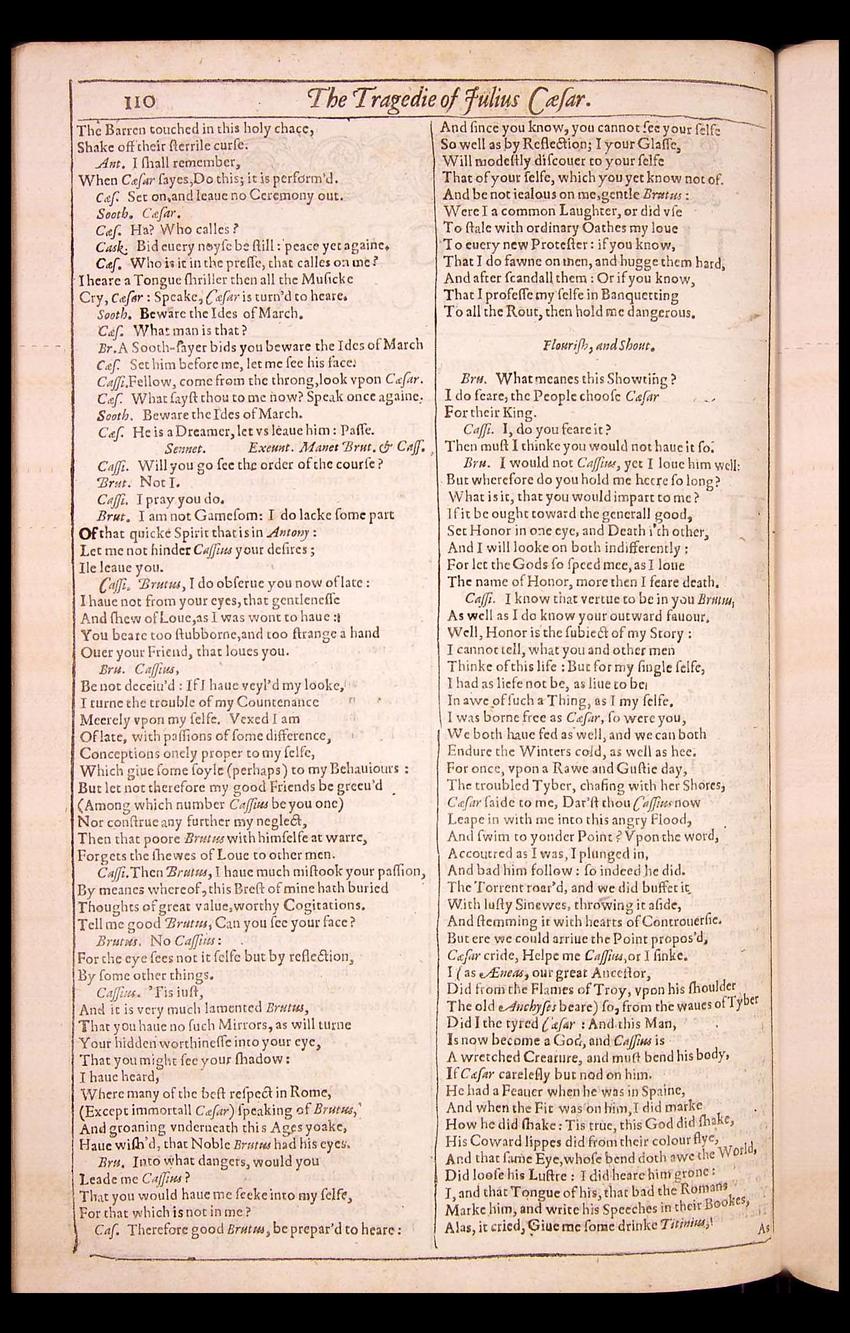 110
The Tragedie of Julius Cæsar.
The Barren touched in this holy chace,
Shake off their sterrile curse.
Ant. I shall remember,
When Cæsar sayes, Do this; it is perform'd.
Cæs. Set on, and leaue no Ceremony out.
Sooth. Cæsar.
Cæs. Ha? Who calles?
Cask. Bid euery noyse be still: peace yet againe.
Cæs. Who is it in the presse, that calles on me?
I heare a Tongue shriller then all the Musicke
Cry, Cæsar: Speake, Cæsar is turn'd to heare.
Sooth. Beware the Ides of March.
Cæs. What man is that?
Br. A Sooth-sayer bids you beware the Ides of March
Cæs. Set him before me, let me see his face.
Cassi. Fellow, come from the throng, look vpon Cæsar.
Cæs. What sayst thou to me now? Speak once againe.
Sooth. Beware the Ides of March.
Cæs. He is a Dreamer, let vs leaue him: Passe.
Sennet. Exeunt. Manet Brut. & Cass.
Cassi. Will you go see the order of the course?
Brut. Not I.
Cassi. I pray you do.
Brut. I am not Gamesom: I do lacke some part
Of that quicke Spirit that is in Antony:
Let me not hinder Cassius your desires;
Ile leaue you.
Cassi. Brutus, I do obserue you now of late:
I haue not from your eyes, that gentlenesse
And shew of Loue, as I was wont to haue:
You beare too stubborne, and too strange a hand
Ouer your Friend, that loues you.
Bru. Cassius,
Be not deceiu'd: If I haue veyl'd my looke,
I turne the trouble of my Countenance
Meerely vpon my selfe. Vexed I am
Of late, with passions of some difference,
Conceptions onely proper to my selfe,
Which giue some soyle (perhaps) to my Behauiours:
But let not therefore my good Friends be greeu'd
(Among which number Cassius be you one)
Nor construe any further my neglect,
Then that poore Brutus with himselfe at warre,
Forgets the shewes of Loue to other men.
Cassi. Then Brutus, I haue much mistook your passion,
By meanes whereof, this Brest of mine hath buried
Thoughts of great value, worthy Cogitations.
Tell me good Brutus, Can you see your face?
Brutus. No Cassius:
For the eye sees not it selfe but by reflection,
By some other things.
Cassius. 'Tis iust,
And it is very much lamented Brutus,
That you haue no such Mirrors, as will turne
Your hidden worthinesse into your eye,
That you might see your shadow:
I haue heard,
Where many of the best respect in Rome,
(Except immortall Cæsar) speaking of Brutus,
And groaning vnderneath this Ages yoake,
Haue wish'd, that Noble Brutus had his eyes.
Bru. Into what dangers, would you
Leade me Cassius?
That you would haue me seeke into my selfe,
For that which is not in me?
Cas. Therefore good Brutus, be prepar'd to heare:
And since you know, you cannot see your selfe
So well as by Reflection; I your Glasse,
Will modestly discouer to your selfe
That of your selfe, which you yet know not of.
And be not iealous on me, gentle Brutus:
Were I a common Laughter, or did vse
To stale with ordinary Oathes my loue
To euery new Protester: if you know,
That I do fawne on men, and hugge them hard,
And after scandall them: Or if you know,
That I professe my selfe in Banquetting
To all the Rout, then hold me dangerous.
Flourish, and Shout.
Bru. What meanes this Showting?
I do feare, the People choose Cæsar
For their King.
Cassi. I, do you feare it?
Then must I thinke you would not haue it so.
Bru. I would not Cassius, yet I loue him well:
But wherefore do you hold me heere so long?
What is it, that you would impart to me?
If it be ought toward the generall good,
Set Honor in one eye, and Death i'th other,
And I will looke on both indifferently:
For let the Gods so speed mee, as I loue
The name of Honor, more then I feare death.
Cassi. I know that vertue to be in you Brutus,
As well as I do know your outward fauour.
Well, Honor is the subiect of my Story:
I cannot tell, what you and other men
Thinke of this life: But for my single selfe,
I had as liefe not be, as liue to be
In awe of such a Thing, as I my selfe.
I was borne free as Cæsar, so were you,
We both haue fed as well, and we can both
Endure the Winters cold, as well as hee.
For once, vpon a Rawe and Gustie day,
The troubled Tyber, chafing with her Shores,
Cæsar saide to me, Dar'st thou Cassius now
Leape in with me into this angry Flood,
And swim to yonder Point? Vpon the word,
Accoutred as I was, I plunged in,
And bad him follow: so indeed he did.
The Torrent roar'd, and we did buffet it
With lusty Sinewes, throwing it aside,
And stemming it with hearts of Controuersie.
But ere we could arriue the Point propos'd,
Cæsar cride, Helpe me Cassius, or I sinke.
I (as Æneas, our great Ancestor,
Did from the Flames of Troy, vpon his shoulder
The old Anchyses beare) so, from the waues of Tyber
Did I the tyred Cæsar: And this Man,
Is now become a God, and Cassius is
A wretched Creature, and must bend his body,
If Cæsar carelesly but nod on him.
He had a Feauer when he was in Spaine,
And when the Fit was on him, I did marke
How he did shake: Tis true, this God did shake,
His Coward lippes did from their colour flye,
And that same Eye, whose bend doth awe the World,
Did loose his Lustre: I did heare him grone:
I, and that Tongue of his, that bad the Romans
Marke him, and write his Speeches in their Bookes,
Alas, it cried, Giue me some drinke Titinius,
As